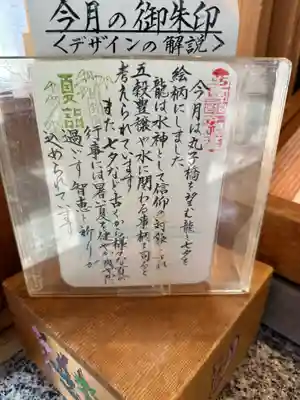 今月の御朱印
<デザインの解説>
今月は丸子橋を望む龍と七夕を
絵柄にしました
龍は水神として信仰の対象
五穀豊穣や水に関わる事柄を司ると
考えられています
また七夕など古くから様々な夏の
行事には暑い夏を健やかに
過いす知恵と祈りが
込められています
夏詣